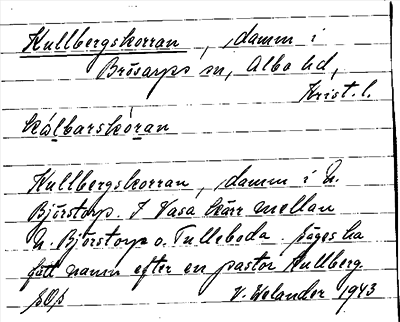 Kullbergskorran, damm i
Brösarps sn, Albo hd,
Krist. l.
kálbarskóran
Kullbergskorran, damm i N.
Björstorp. I Vasa kärr mellan
N. Björstorp o. Tulleboda. Säges ha
fått namn efter en pastor Kullberg
V. Welander 1943